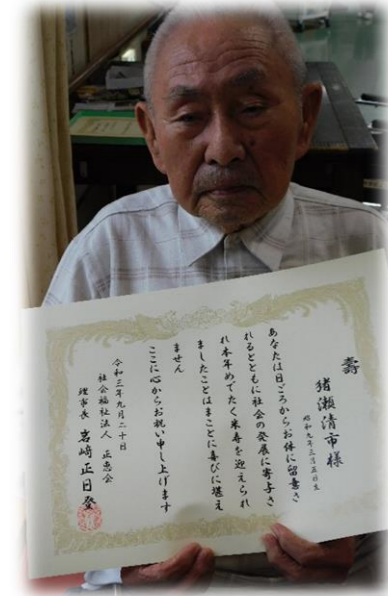 壽
猪瀬清市様
昭和九年三月五日生
あなたは日ごろからお体に留意さ
れるとともに社会の発展に寄予さ
れ本年めでたく米寿を迎えられ
ましたことはまことに喜びに堪え
ません
ここに心からお祝い申し上げます
令和三年九月二十日
社会福祉法人 正恵会
理事長 岩﨑正日登